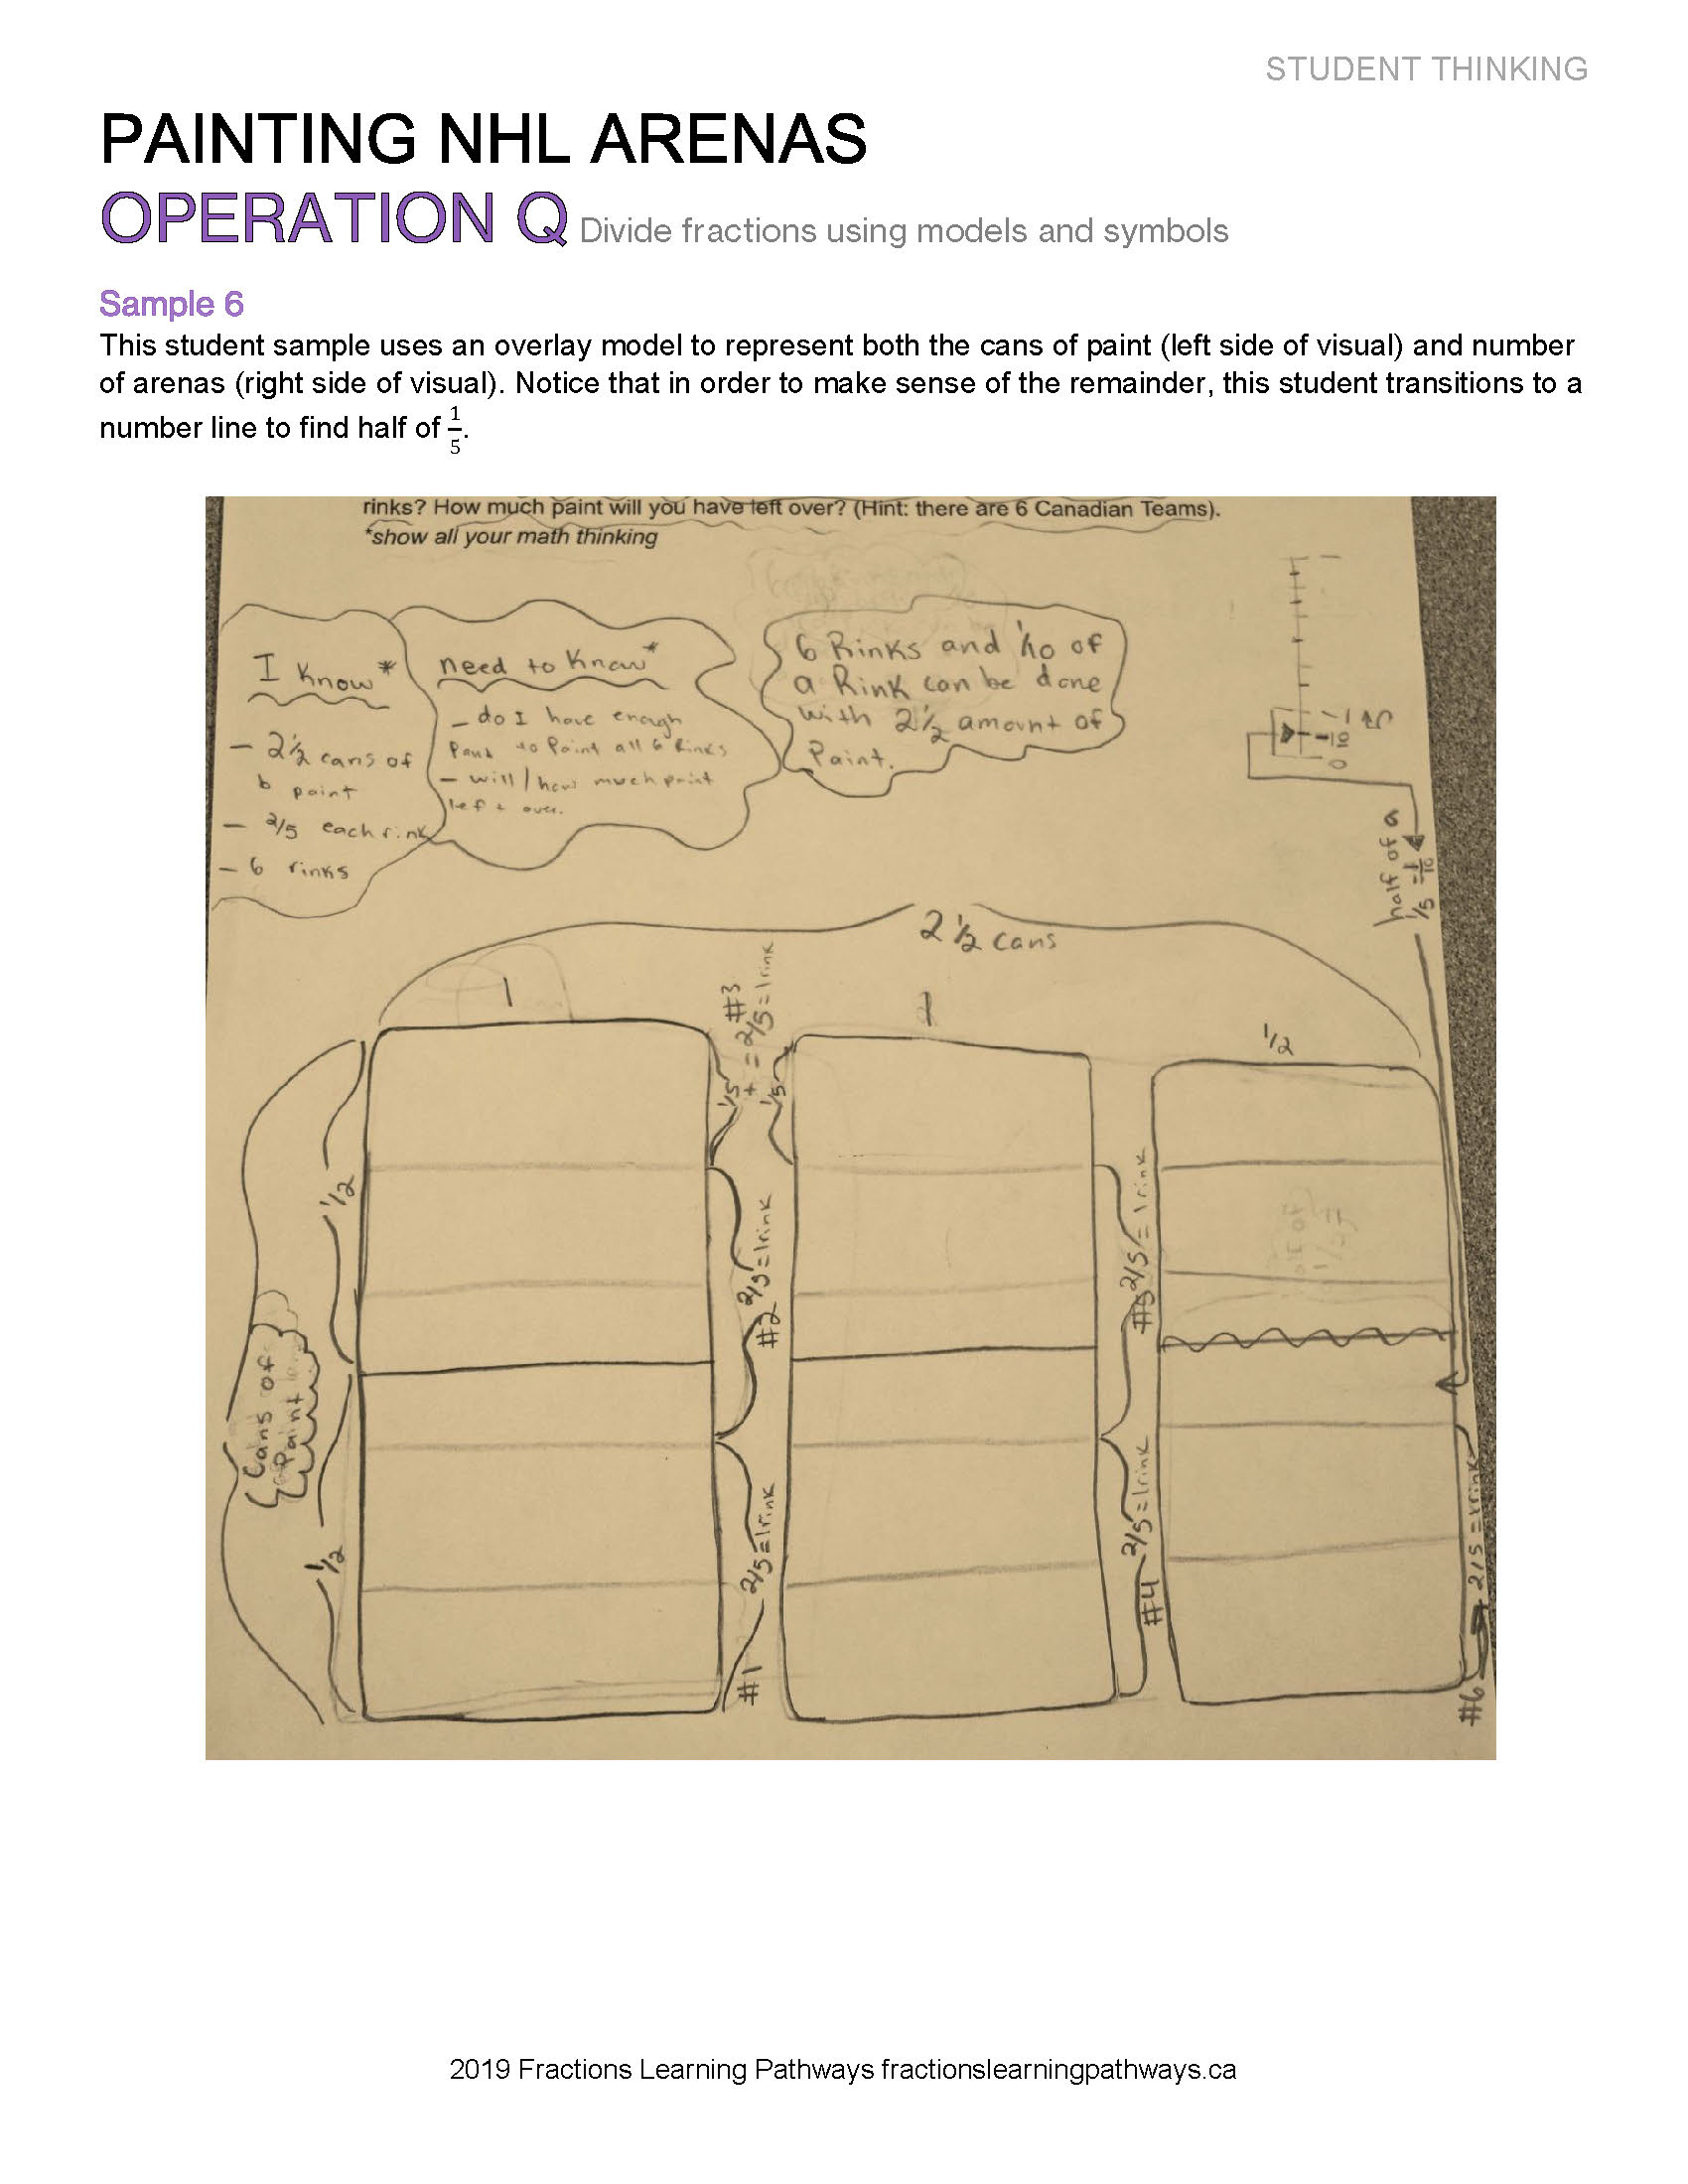 STUDENT THINKING
PAINTING NHL ARENAS
OPERATION Q Divide fractions using models and symbols
Sample 6
This student sample uses an overlay model to represent both the cans of paint (left side of visual) and number
of arenas (right side of visual). Notice that in order to make sense of the remainder, this student transitions to a
number line to find half of 1/5.
rinks? How much paint will you have left over? (Hint: there are 6 Canadian Teams).
*show all your math thinking
I know*
- 2 1/2 cans of
paint
- 2/5 each rink
- 6 rinks
need to know*
- do I have enough
to Paint all 6 Rinks
- will / how much paint
left over.
6 Rinks and 1/10 of
a Rink can be done
with 2 1/2 amount of
Paint.
1/5
1/10
0
half of a
1/5 = 1/10
2 1/2 cans
1
1
1/2
Cans of
Paint
1/2
1/2
#3
1/5 + 1/5 = 2/5 = 1 rink
#2 2/5 = 1 rink
#1 2/5 = 1 rink
#5 2/5 = 1 rink
#4 2/5 = 1 rink
#6 2/5 = 1 rink
2019 Fractions Learning Pathways fractionslearningpathways.ca